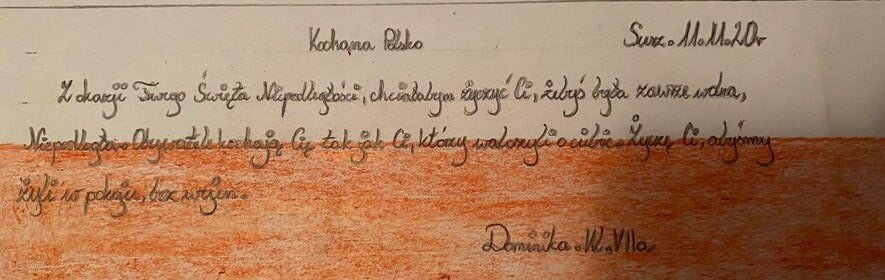 Kochana Polsko Swrz. 11.11.20r
Z okazji Twego Święta Niepodległości, chciałabym życzyć Ci, żebyś była zawsze wolna,
Niepodległa. Obywatele kochają Cię tak jak Ci, którzy walczyli o ciebie. Życzę Ci, abyśmy
żyli w pokoju, bez wojen.
Dominika . W. VIIa